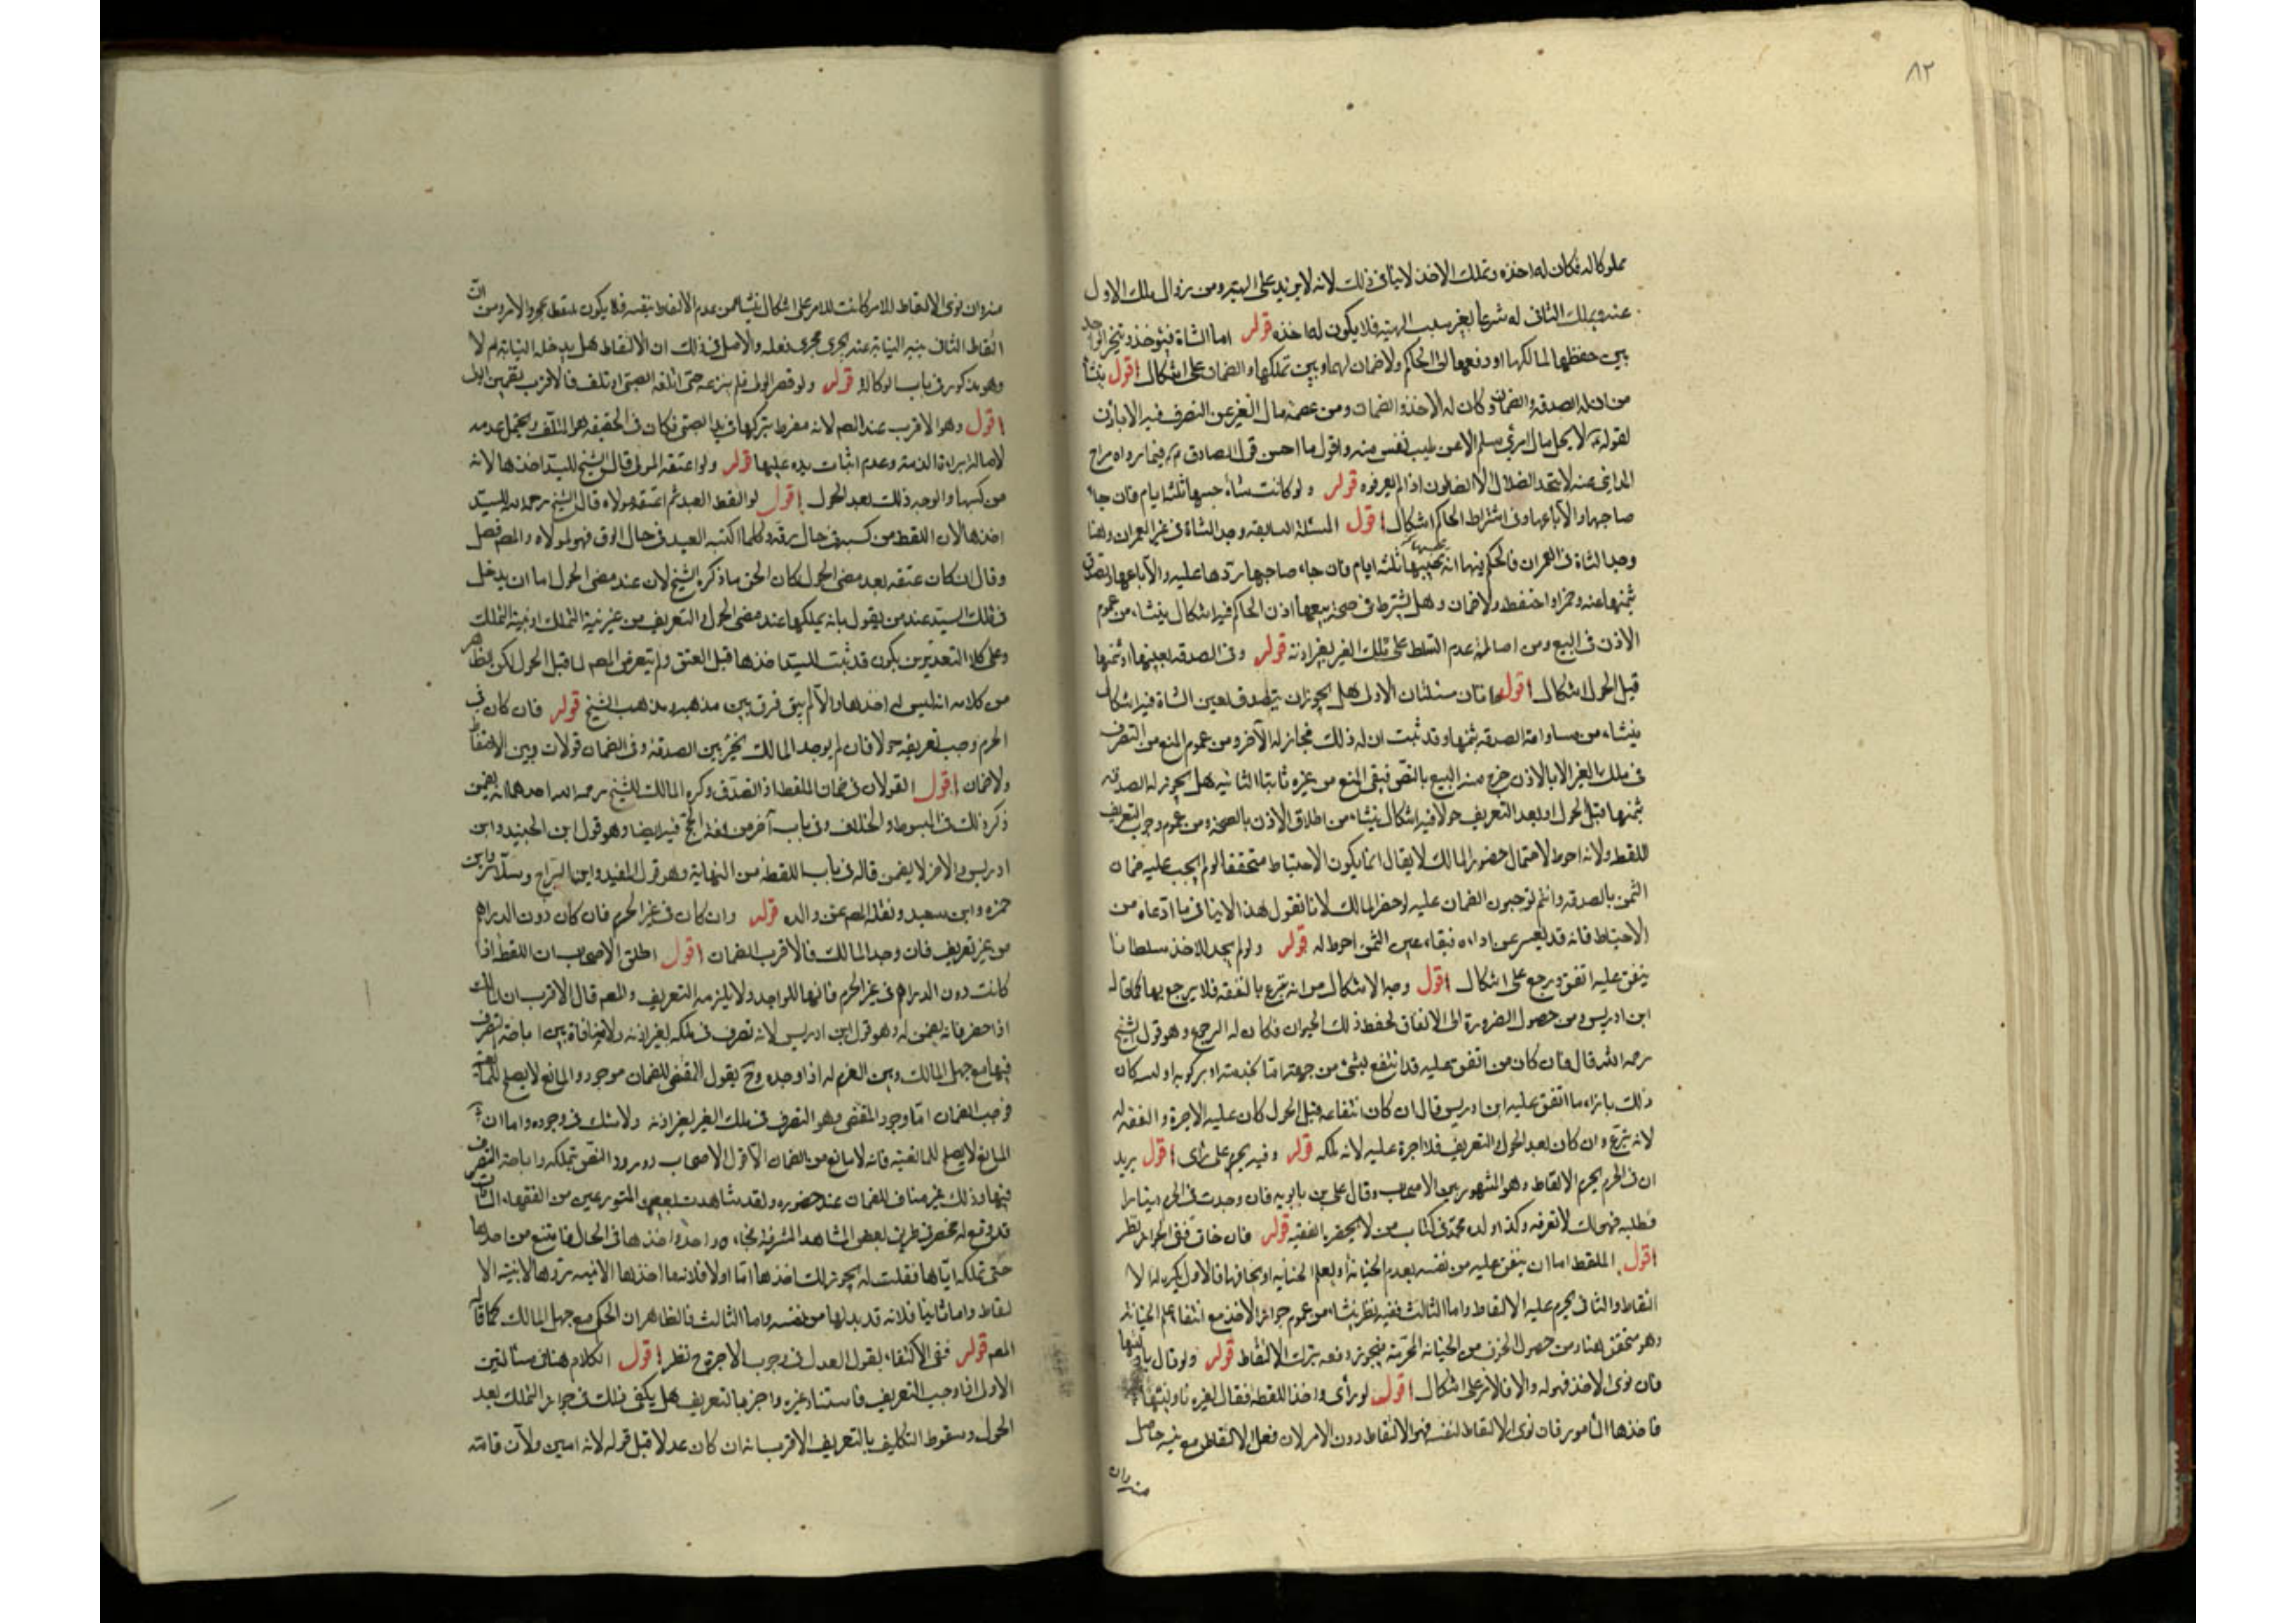 ٨٢
مملوكا له فكان له اخذه وتملك الاخذ لاينافى ذلك لانه لايزيد على الهبة ومن زوال ملك الاول
عنه وتملك الثانى له شرعا بغير سبب الهبة فلايكون له اخذه قوله اما الشاة فيؤخذ ويتخير الواجد
بين حفظها لمالكها او دفعها الى الحاكم ولاضمان لهما وبين تملكها والضمان على اشكال اقول ينشأ
من ان له الصدقة والضمان وكان له الاخذ والضمان ومن عصمة مال الغير عن التصرف فيه الا باذن
لقوله لايحل مال امرئ مسلم الا عن طيب نفس منه واقول ما احسن قول الصادق فيما رواه جراح
المداينى عنه لايتخذ الضلال الا الضالون اذا لم يعرفوه قوله ولو كانت شاة حبسها ثلثة ايام فان جاء
صاحبها والا باعها وفى اشتراط الحاكم اشكال اقول المسئلة السابقة وجد الشاة فى غير العمران وهنا
وجد الشاة فى العمران فالحكم فيها انه يحبسها ثلثة ايام فان جاء صاحبها ردها عليه والا باعها وتصدق
بثمنها عنه وضمن او احتفظ ولاضمان وهل يشترط فى صحة بيعها اذن الحاكم فيه اشكال ينشاء من عموم
الاذن فى البيع ومن اصالة عدم التسلط على ملك الغير بغير اذنه قوله وفى الصدقة بعينها او ثمنها
قبل الحول اشكال اقول هاتان مسئلتان الاولى هل يجوز ان يتصدق بعين الشاة فيه اشكال
ينشاء من مساواة الصدقة بثمنها وقد ثبت ان له ذلك فجاز له الآخر ومن عموم المنع من التصرف
فى ملك الغير الا بالاذن خرج منه البيع بالنص فيبقى المنع من غيره ثابتا الثانية هل يجوز له الصدقة
بثمنها قبل الحول او بعد التعريف حولا فيه اشكال ينشاء من اطلاق الاذن بالصحة ومن عموم وجوب التعريف
للقطة ولانه احوط لاحتمال حضور المالك لايقال انما يكون الاحتياط متحققا لو لم يجب عليه ضمان
الثمن بالصدقة وانتم توجبون الضمان عليه لو حضر المالك لانا نقول هذا لاينافى ما ادعاه من
الاحتياط فانه قد يعسر عن اداءه فبقاء عين الثمن احوط له قوله ولو لم يجد الاخذ سلطانا
ينفق عليه انفق ورجع على اشكال اقول وجه الاشكال من انه تبرع بالنفقة فلايرجع بها كما قاله
ابن ادريس ومن حصول الضرورة الى الانفاق لحفظ ذلك الحيوان فكان له الرجوع وهو قول الشيخ
رحمه الله قال فان كان من انفق عليه قد انتفع بشئ من جهته اما بخدمته او بركوبه او لبنه كان
ذلك بازاء ما انفق عليه ابن ادريس قال ان كان انتفاعه قبل الحول كان عليه الاجرة والنفقة له
لانه تبرع وان كان بعد الحول والتعريف فلا اجرة عليه لانه ملكه قوله وفيه يحرم على رأى اقول يريد
ان فى الحرم يحرم الالتقاط وهو المشهور بين الاصحاب وقال على بن بابويه فان وجدت فى الحرم دينارا
مطلسا فهو لك لاتعرفه وكذا ولده محمد فى كتاب من لايحضره الفقيه قوله فان خاف ففى الجواز نظر
اقول الملتقط اما ان يثق عليه من نفسه بعدم الخيانة او يعلم الخيانة او يخافها فالاول يكره له الا
لتقاط والثانى يحرم عليه الالتقاط واما الثالث ففيه نظر ينشاء من عموم جواز الاخذ مع انتفاء علم الخيانة
وهو متحقق هنا ومن حصول الخوف من الخيانة المحرمة فيجوز دفعه بترك الالتقاط قوله ولو قال ناولنيها
فان نوى الاخذ فهو له والا فالامر على اشكال اقول لو رأى واحد اللقطة فقال لغيره ناولنيها
فاخذها المأمور فان نوى الالتقاط لنفسه فهو الالتقاط دون الامر لان فعل الالتقاط مع نيته حاصل
منه وان
منه وان نوى الالتقاط للامر كانت للامر على اشكال ينشاء من عدم الالتقاط بنفسه فلا يكون ملتقطا بمجرد الامر ومن ان
التقاط الثانى بنية النيابة عنه يجرى مجرى فعله والاصل فى ذلك ان الالتقاط هل يدخله النيابة ام لا
وهو مذكور فى باب الوكالة قوله ولو قصر الولى فلم ينزعه حتى اتلفه الصبى او تلف فالاقرب تضمين الولى
اقول وهو الاقرب عند المصم لانه مفرط بتركها فى يد الصبى فكان فى الحقيقة هو المتلف ويحتمل عدمه
لاصالة براءة الذمة وعدم اثبات يده عليها قوله ولو اعتقه المولى قال الشيخ للسيد اخذها لانه
من كسبها والوجه ذلك بعد الحول اقول لو التقط العبد ثم اعتقه مولاه قال الشيخ رحمه الله للسيد
اخذها لان اللقطة من كسبه فى حال رقه وكلما اكتسبه العبد فى حال الرق فهو لمولاه والمصم فصل
وقال ان كان عتقه بعد مضى الحول كان الحق ما ذكره الشيخ لان عند مضى الحول اما ان يدخل
فى ملك السيد عند من يقول بانه يملكها عند مضى الحول والتعريف من غير نية التملك او بنية التملك
وعلى كلا التقديرين يكون قد ثبت للسيد اخذها قبل العتق ولم يتعرض المصم لما قبل الحول لكن الظاهر
من كلامه انه ليس له اخذها والا لم يبق فرق بين مذهبه ومذهب الشيخ قوله فان كان فى
الحرم وجب تعريفه حولا فان لم يوجد المالك يخير بين الصدقة وفى الضمان قولان وبين الاحتفاظ
ولاضمان اقول القولان فى ضمان الملتقط اذا تصدق وكره المالك للشيخ رحمه الله احدهما انه يضمن
ذكره ذلك فى المبسوط والخلاف وفى باب آخر من النهاية ايضا وهو قول ابن الجنيد وابن
ادريس والاخر لايضمن قاله فى باب اللقطة من النهاية وهو قول المفيد وابن البراج وسلار وابن
حمزه وابن سعيد ونقله المصم عن والده قوله وان كان فى غير الحرم فان كان دون الدراهم
من غير تعريف فان وجد المالك فالاقرب الضمان اقول اطلق الاصحاب ان اللقطة اذا
كانت دون الدراهم فى غير الحرم فانها للواجد ولا يلزمه التعريف والمصم قال الاقرب ان المالك
اذا حضر فانه يضمن له وهو قول ابن ادريس لانه تصرف فى ملكه بغير اذنه ولامنافاة بين اباحة التصرف
فيها مع جهل المالك وبين الغرم له اذا وجده وح يقول المقتضى للضمان موجود والمانع لايصلح للمانعية
فوجب الضمان اما وجود المقتضى وهو التصرف فى ملك الغير بغير اذنه ولاشك فى وجوده واما ان
المانع لايصلح للمانعية فانه لامانع من الضمان الا قول الاصحاب وورود النص بتملكه واباحة التصرف
فيها وذلك غير مناف للضمان عند حضوره ولقد شاهدت بعض المتورعين من الفقهاء الثقات
قد وقع له مخصر فى طريق بعض المشاهد المشرفة فجاءه واحد واخذها فى الحال فامتنع من اخذها
حتى تملكه اياها فقلت له يجوز لك اخذها اما اولا فلانه ما اخذها الا بنية ردها لا بنية الا
لتقاط واما ثانيا فلانه قد بذلها من نفسه واما الثالث فالظاهر ان الحكم مع جهل المالك كما قاله
المصم قوله ففى الاكتفاء بقول العدل فى وجوب الاجرة ح نظر اقول الكلام هنا فى مسألتين
الاولى اذا وجب التعريف فاستناد غيره واخبر بالتعريف هل يكفى ذلك فى جواز التملك بعد
الحول وسقوط التكليف بالتعريف الاقرب انه ان كان عدلا قبل قوله لانه امين ولان اقامته